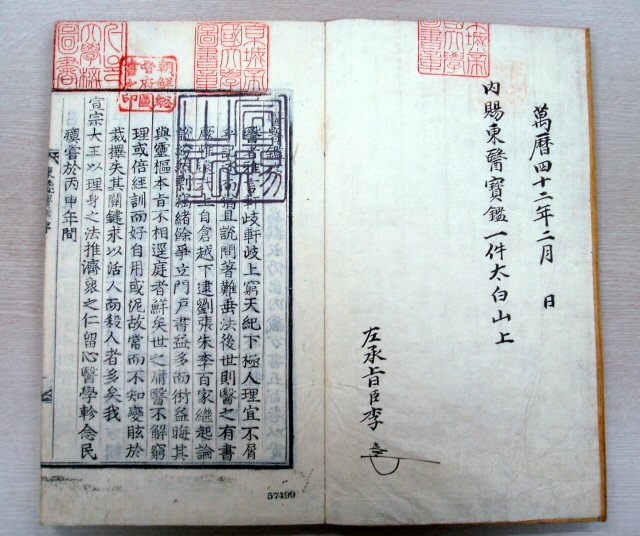 萬曆四十二年二月 日
內賜東醫寶鑑一件太白山上
左承旨臣李
京城帝國大學圖書章
朝鮮總督府圖書之印
大學校圖書
醫者雅言軒岐軒岐上窮天紀下極人理宜不屑
而猶且說問著難垂法後世則醫之有書
上自倉越下逮劉張朱李百家繼起論
剽竊緒餘爭立門戶書益多而術益晦其
與靈樞本旨不相逕庭者鮮矣世之庸醫不解窮
理或倍經訓而好自用或泥故常而不知變眩於
裁擇失其關鍵求以活人而殺人者多矣我
宣宗大王以理身之法推濟衆之仁留心醫學軫念民
瘼嘗於丙申年間
57499